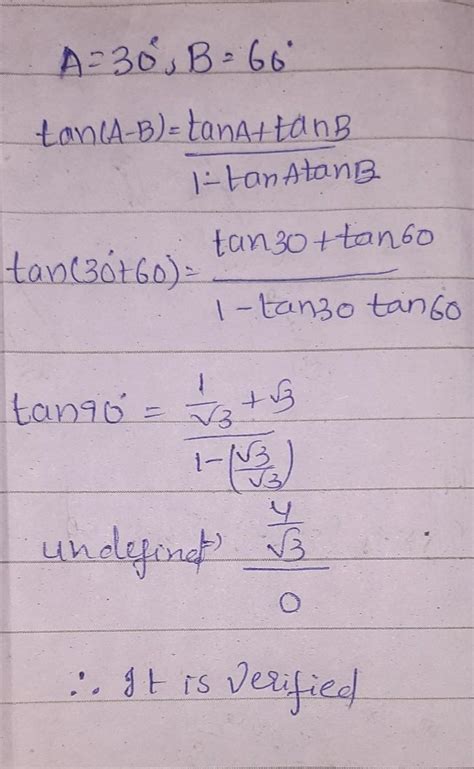 A=30°, B=60°
tan(A-B)=tanA+tanB
1-tanAtanB
tan(30°+60)=tan30+tan60
1-tan30 tan60
tan90°=1/√3+√3
1-(√3/√3)
undefined 4/√3
0
∴ It is verified